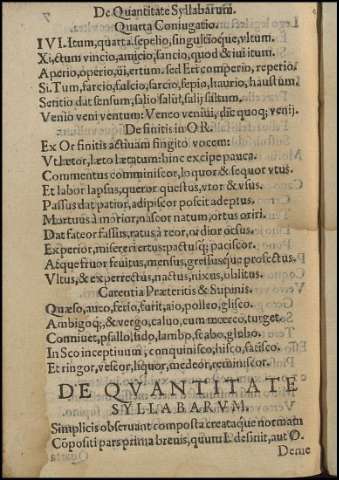 De Quantitate Syllabarum.
Quarta Coniugatio.
IVI. Itum, quarta, sepelio, singultioque, vltum.
Xi, ctum vincio, amicio, sancio, quod & iui itum.
Aperio, operio, ui, ertum. sed Eri comperio, reperio.
Si. Tum, farcio, fulcio, sarcio, sepio, haurio, haustum.
Sentio dat sensum, salio salui, salij saltum.
Venio veni ventum: Veneo veniui, dic quoq; venij.
De finitis in OR.
Ex Or finitis actiuam fingito vocem:
Vt lætor, læto lætatum: hinc excipe pauca.
Commentus comminiscor, loquor & sequor vtus.
Et labor lapsus, queror questus, vtor & vsus.
Passus dat patior, adipiscor poscit adeptus.
Mortuus à morior, nascor natum, ortus oriri.
Dat fateor fassus, ratus à reor, ordior orsus.
Experior, misereri ertus: pactusq; paciscor.
Atque fruor fruitus, mensus, gressusque profectus.
Vltus, & experrectus, nactus, nixus, oblitus.
Carentia Præteritis & Supinis.
Quæso, aueo, ferio, furit, aio, polleo, glisco.
Ambigoq;, & vergo, caluo, cum mœreo, turget.
Conniuet, psallo, fido, lambo, scabo, glubo.
In Sco inceptiuum, conquinisco, hisco, fatisco.
Et ringor, vescor, liquor, medeor, reminiscor.
DE QVANTITATE
SYLLABARVM.
Simplicis obseruant composta creataque normam
Cōpositi pars prima breuis, quum L desinit, aut O.
Deme